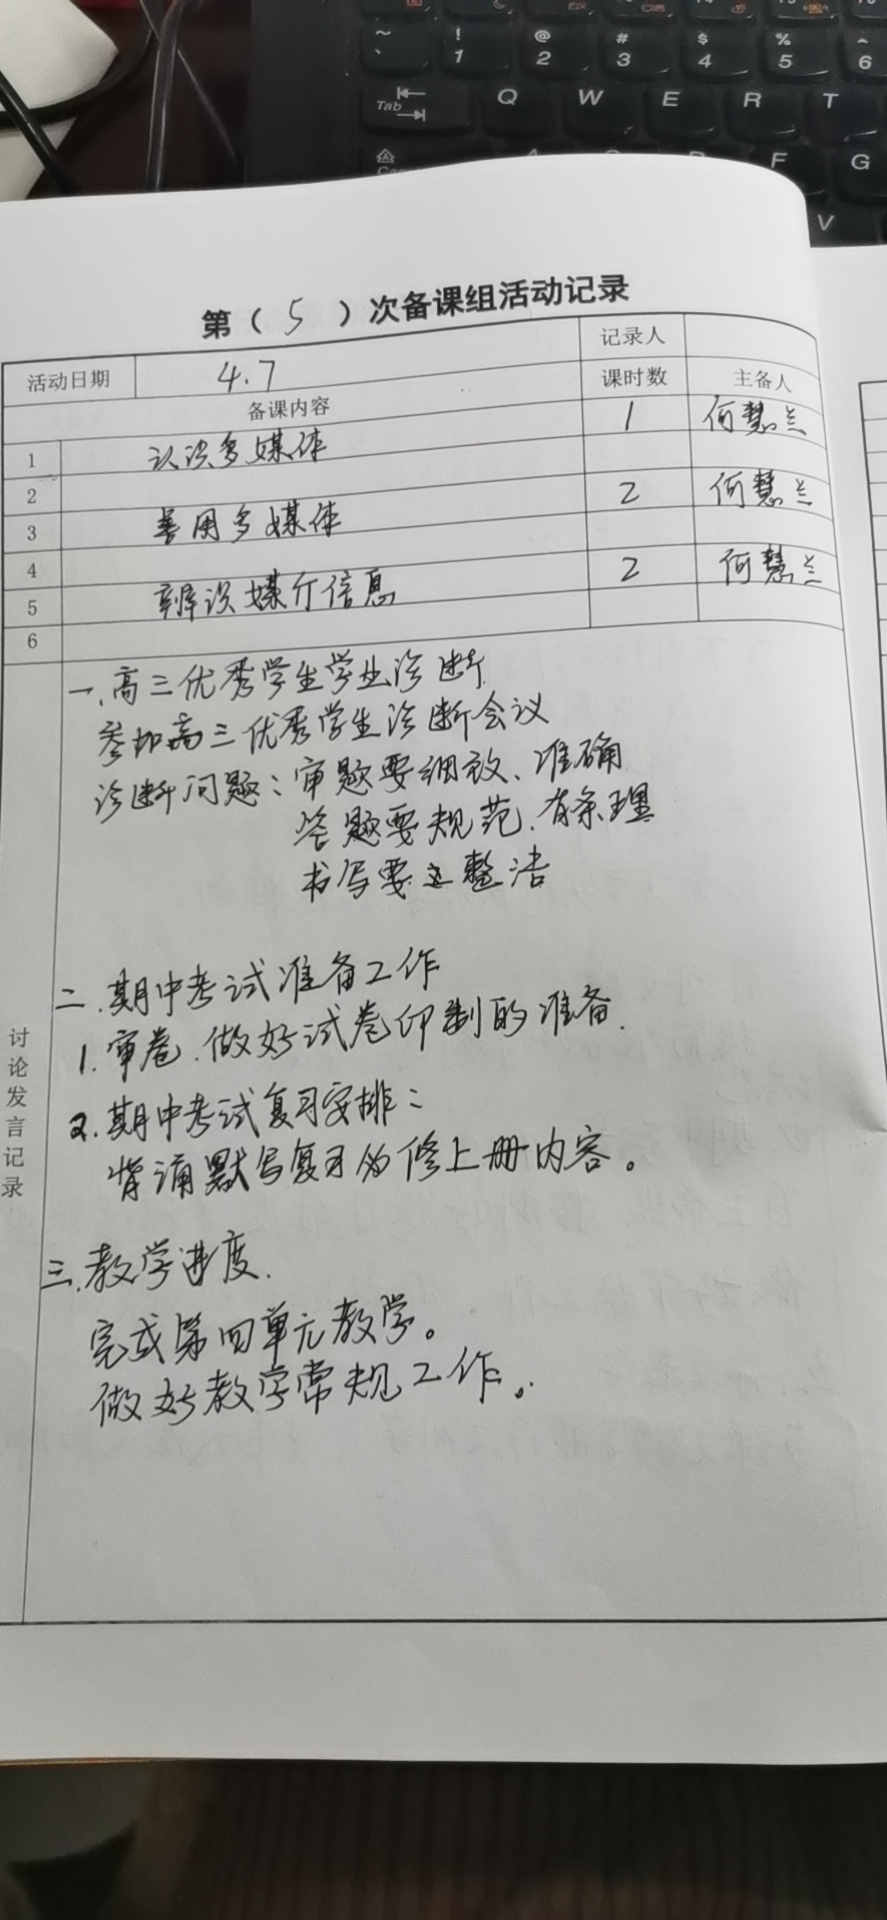 ~ ` ! 1 @ 2 # 3 $ 4 % 5 ^ 6
Tab Q W E R T
F G
V
第（5）次备课组活动记录
活动日期 4.7 记录人
备课内容 课时数 主备人
1 认识多媒体 1 何慧兰
2
3 善用多媒体 2 何慧兰
4
5 辨识媒介信息 2 何慧兰
6
讨论发言记录
一、高三优秀学生学业诊断
参加高三优秀学生诊断会议
诊断问题：审题要细致、准确
答题要规范、有条理
书写要 整洁
二、期中考试准备工作
1. 审卷、做好试卷印制的准备.
2. 期中考试复习安排：
背诵默写复习必修上册内容。
三、教学进度.
完成第四单元教学。
做好教学常规工作。